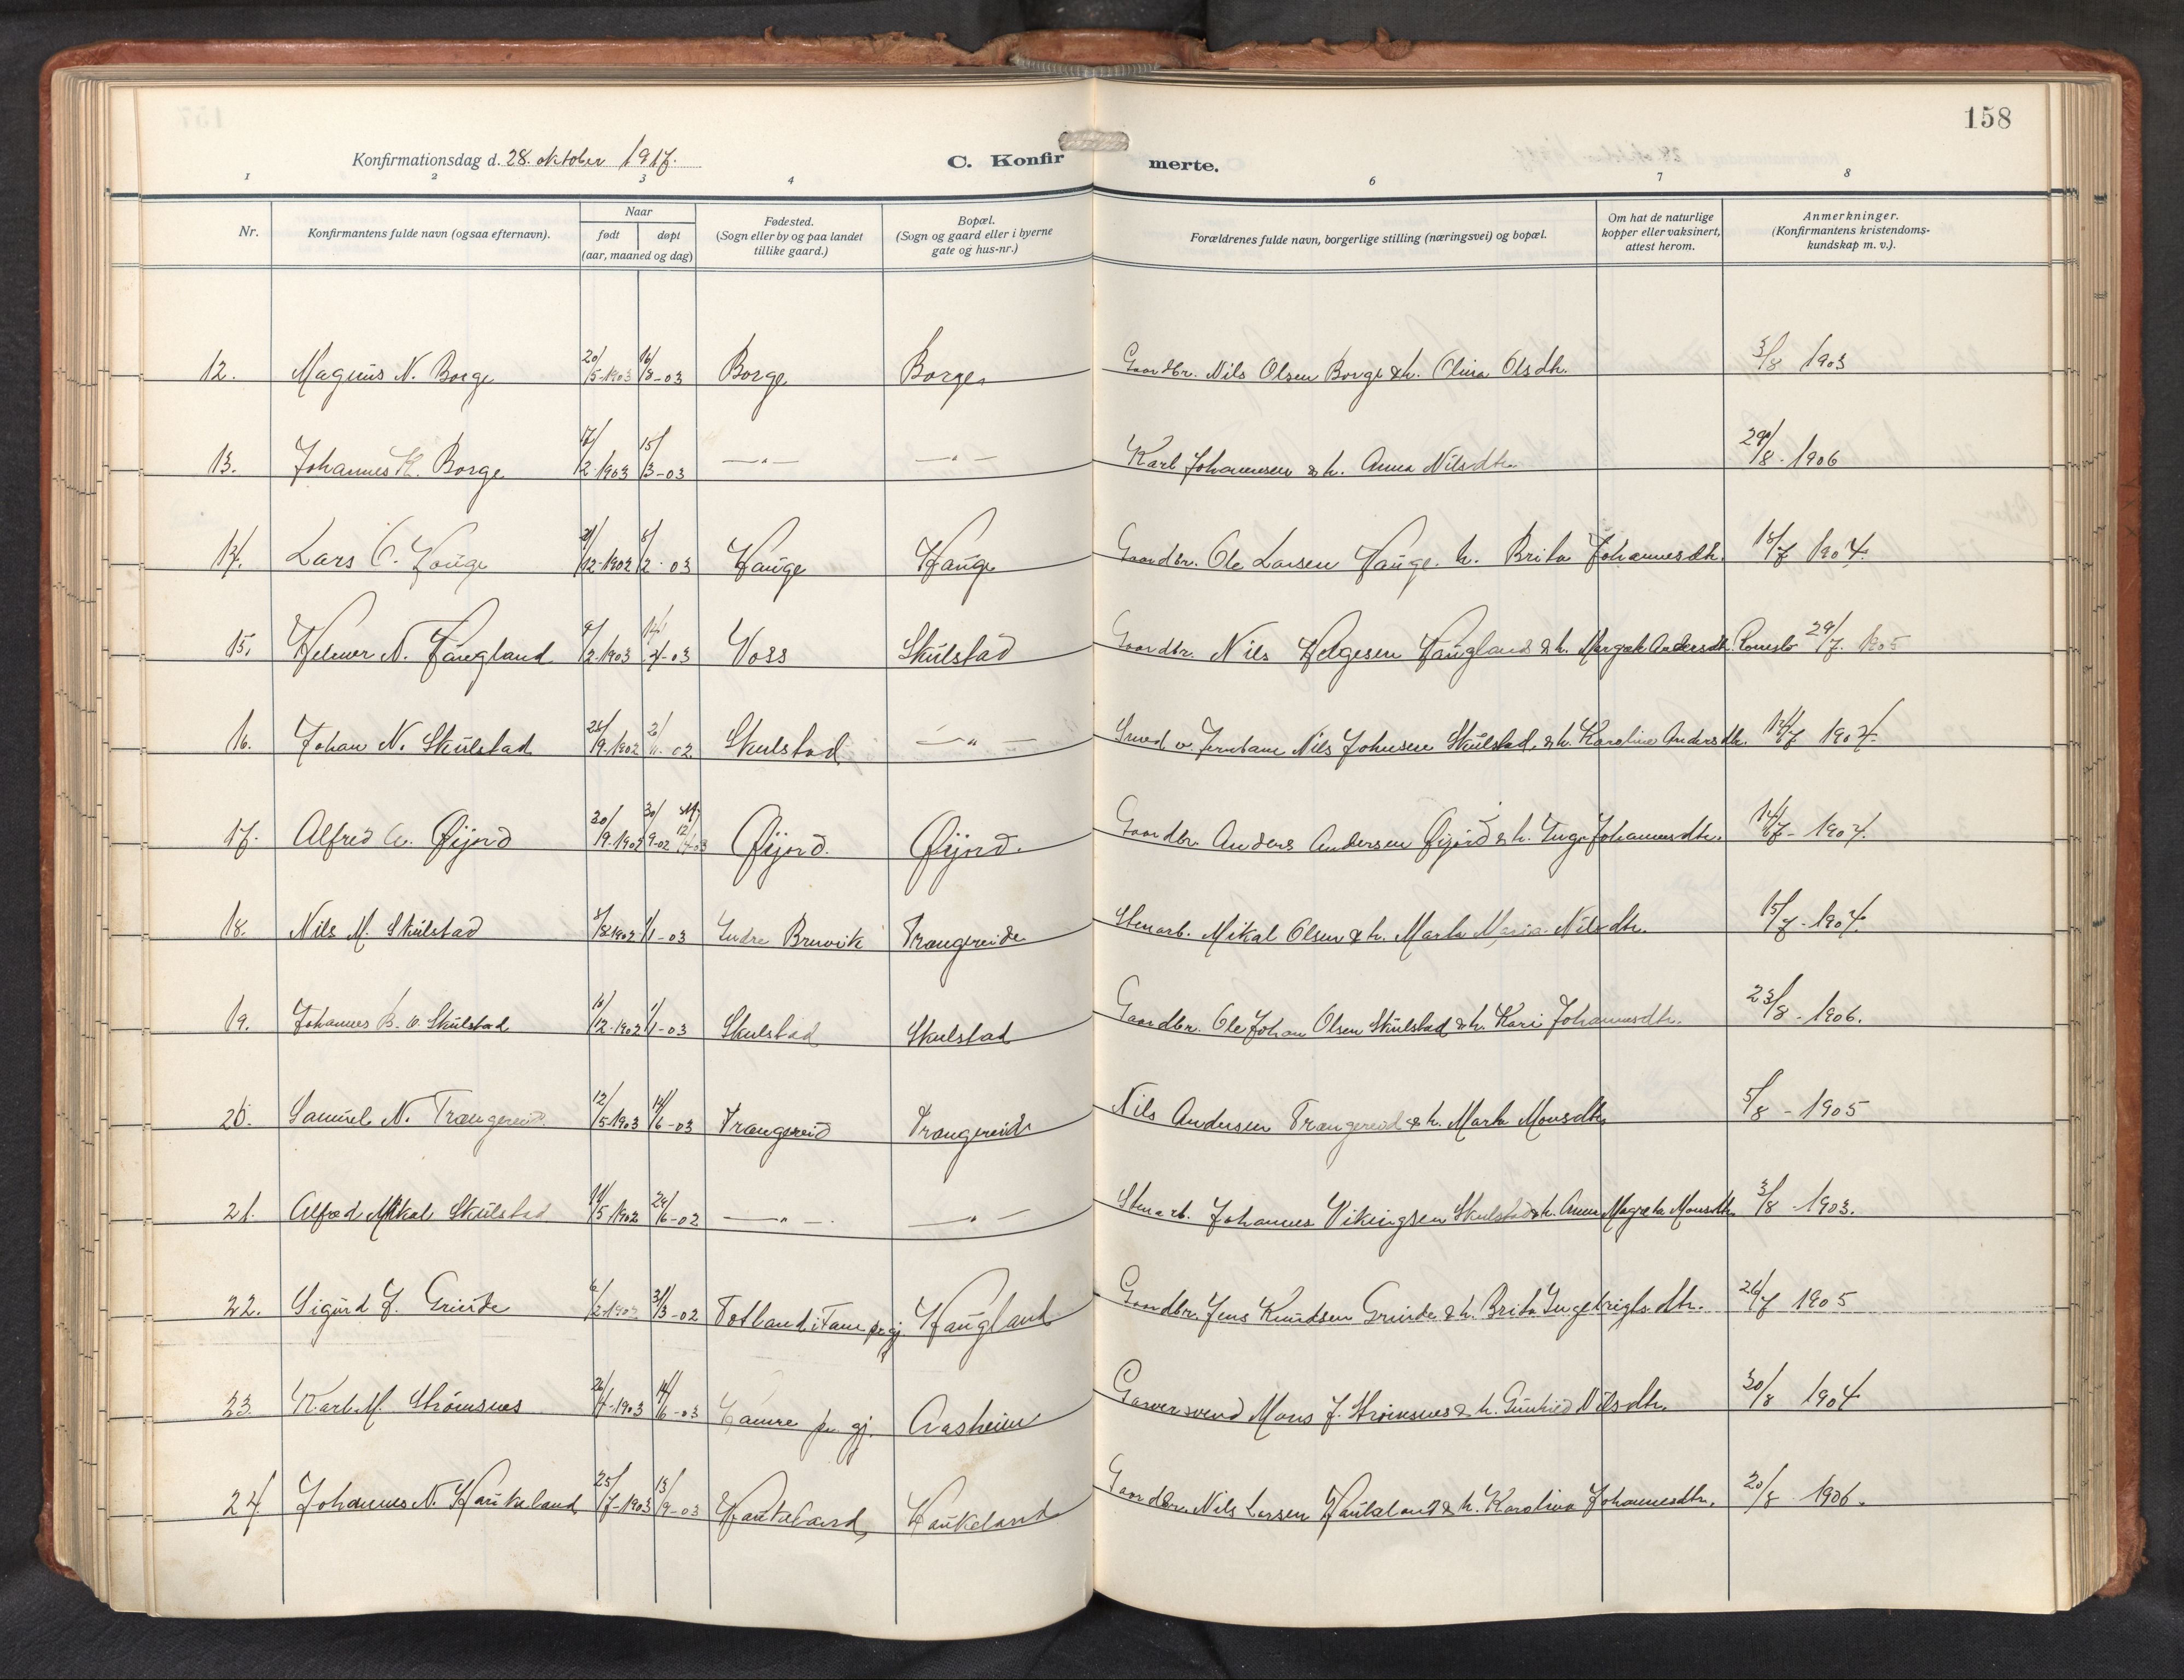 158
Konfirmationsdag d. 28. oktober 1917.
C. Konfirmerte.
1 2 3 4 6 7 8
Nr.
Konfirmantens fulde navn (ogsaa efternavn).
Naar
født døpt
(aar, maaned og dag)
Fødested.
(Sogn eller by og paa landet
tillike gaard.)
Bopæl.
(Sogn og gaard eller i byerne
gate og hus-nr.)
Forældrenes fulde navn, borgerlige stilling (næringsvei) og bopæl.
Om hat de naturlige
kopper eller vaksinert,
attest herom.
Anmerkninger.
(Konfirmantens kristendoms-
kundskap m. v.).
12. Magnus N. Borge 20/5-1903 16/8-03 Borge Borge Gaardbr. Nils Olsen Borge & h. Olina Olsdtr. 3/8 1903
13. Johannes K. Borge 17/2-1903 15/3-03 —„— —„— Karl Johannesen & h. Anna Nilsdtr. 29/8-1906
14. Lars O. Hauge /12-1902 8/2-03 Hauge Hauge Gaardbr. Ole Larsen Hauge & h. Brita Johannesdtr. 18/7 1904.
15. N. Haugland 9/2-1903 14/4-03 Voss Skulstad Gaardbr. Nils Helgesen Haugland & h. Margrete Andersdtr. 29/7. 1905
16. Johan N. Skulstad /9-1902 2/11-02. Skulstad —„— Smed v. Jernbane Nils Johnsen Skulstad & h. Karolina Andersdtr. 14/7 1904.
17. Alfred A. Øijord 20/9-1902 30/9-02 12/4-03 Øijord. Øijord. Gaardbr. Anders Andersen Øijord & h. Inga Johannesdtr. 14/7-1904.
18. Nils M. Skulstad /8 1902 1/1-03 Indre Bruvik Trængereide Stenarb. Mikal Olsen & h. Marta Maria Nilsdtr. 15/7-1904.
19. Johannes B. O. Skulstad /12-1902 1/1-03 Skulstad Skulstad Gaardbr. Ole Johan Olsen Skulstad & h. Kari Johannesdtr. 23/8-1906.
20. Samuel N. Trængereid 12/5-1903 14/6-03 Trængereid Trængereide Nils Andersen Trængereid & h. Marta Monsdtr. 5/8-1905
21. Alfred Mikal Skulstad /5-1902 29/6-02 —„— —„— Stenarb. Johannes Vikingsen Skulstad & h. Anna Magreta Monsdtr. 3/8-1903.
22. Sigurd J. Grinde 6/2-1902 31/3-02 Totland i Fane pr. gj. Haugland Gaardbr. Jens Knudsen Grinde & h. Brita Ingebrigtsdtr. 26/7 1905
23. Karl M. Strømsnes 26/4-1903 14/6-03 Hamre pr. gj. Aasheim Garversvend Mons J. Strømsnes & h. Gunhild Nilsdtr. 30/8 1904
24. Johannes N. Haukeland 25/7-1903 13/9-03 Haukeland Haukeland Gaardbr. Nils Larsen Haukeland & h. Karolina Johannesdtr. 20/8-1906.